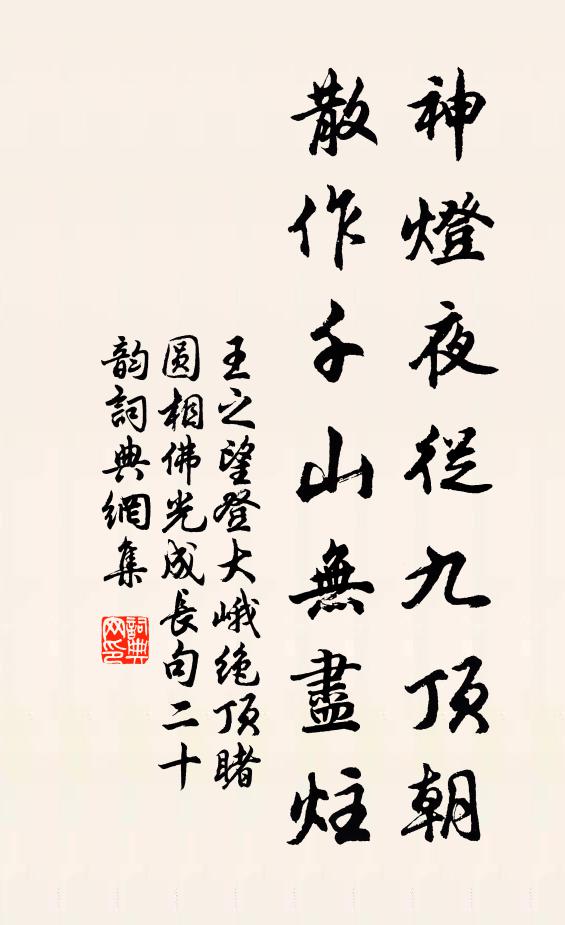 神燈夜從九頂朝
散作千山無盡炷
王之望登大峨绝頂睹
圆相佛光成長句二十
韵詞典網集
詞典网印